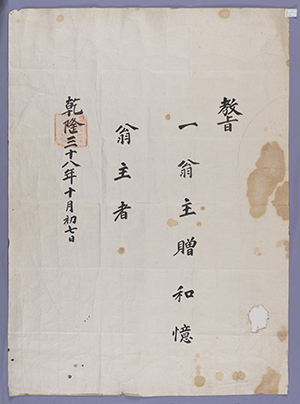 教旨
一翁主贈和憶
翁主者
乾隆三十八年十月初七日